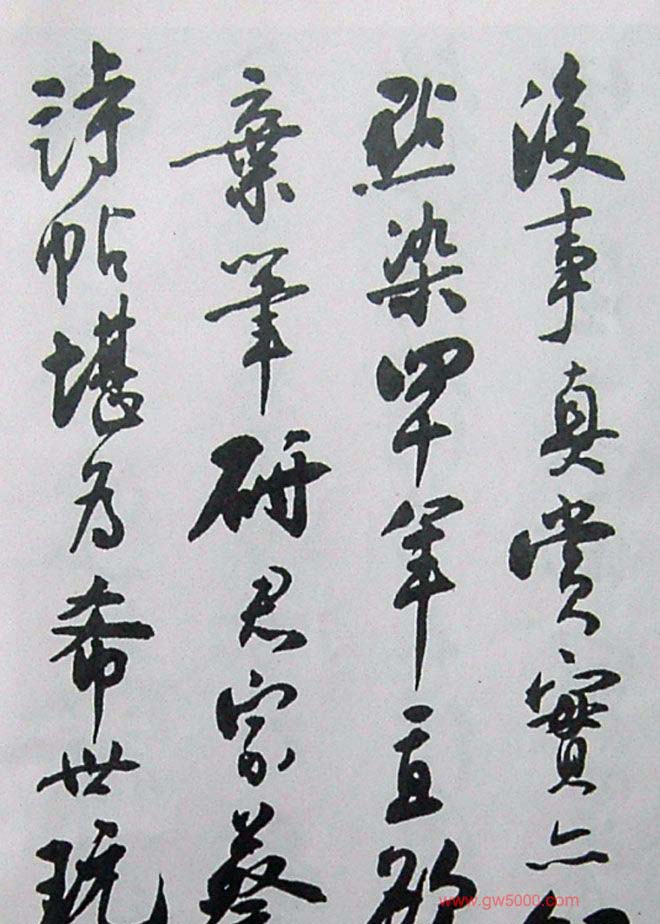 後事真賞實亦
點染畢筆直欲
棄筆研君家蔡
詩帖堪為希世玩
www.gw5000.com